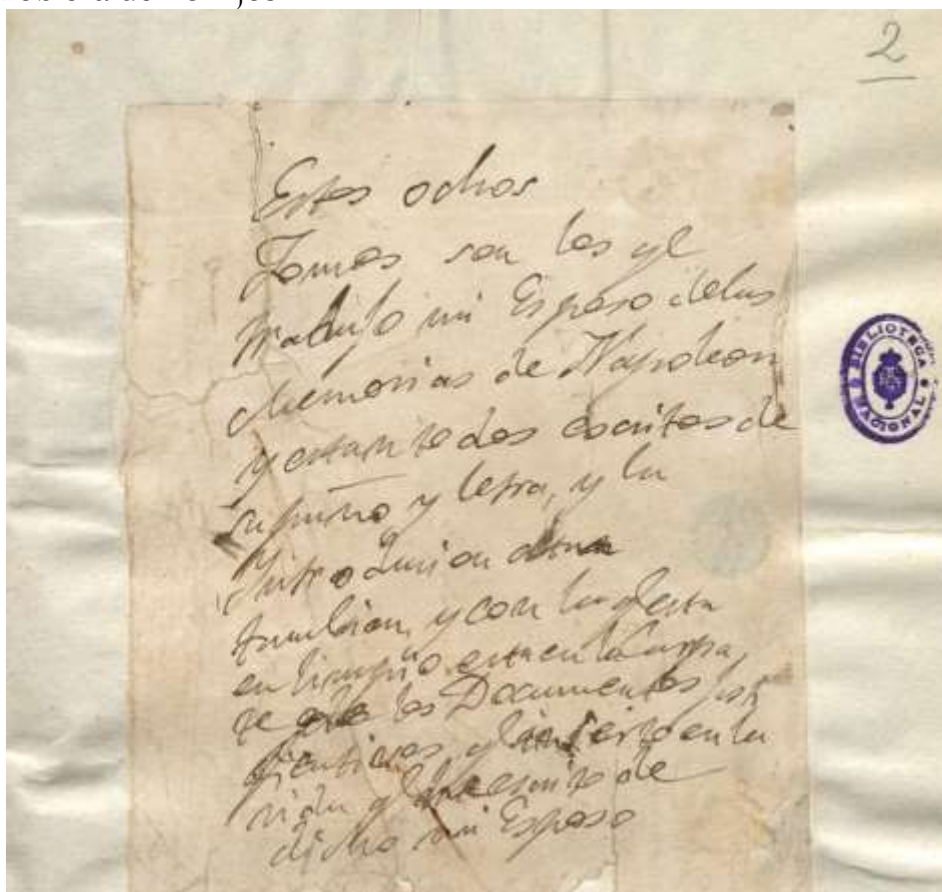 2
Estos ochos
Tomos son los qe
tradujo mi Esposo delas
Memorias de Napoleon
y estan todos escritos de
su puño y letra, y la
Introducion
tambien, y con la
en limpio esta en la Carpa,
de los Documentos justi
ficativos, y en la
vida qe escrito de
dicho mi Esposo
BIBLIOTECA
NACIONAL